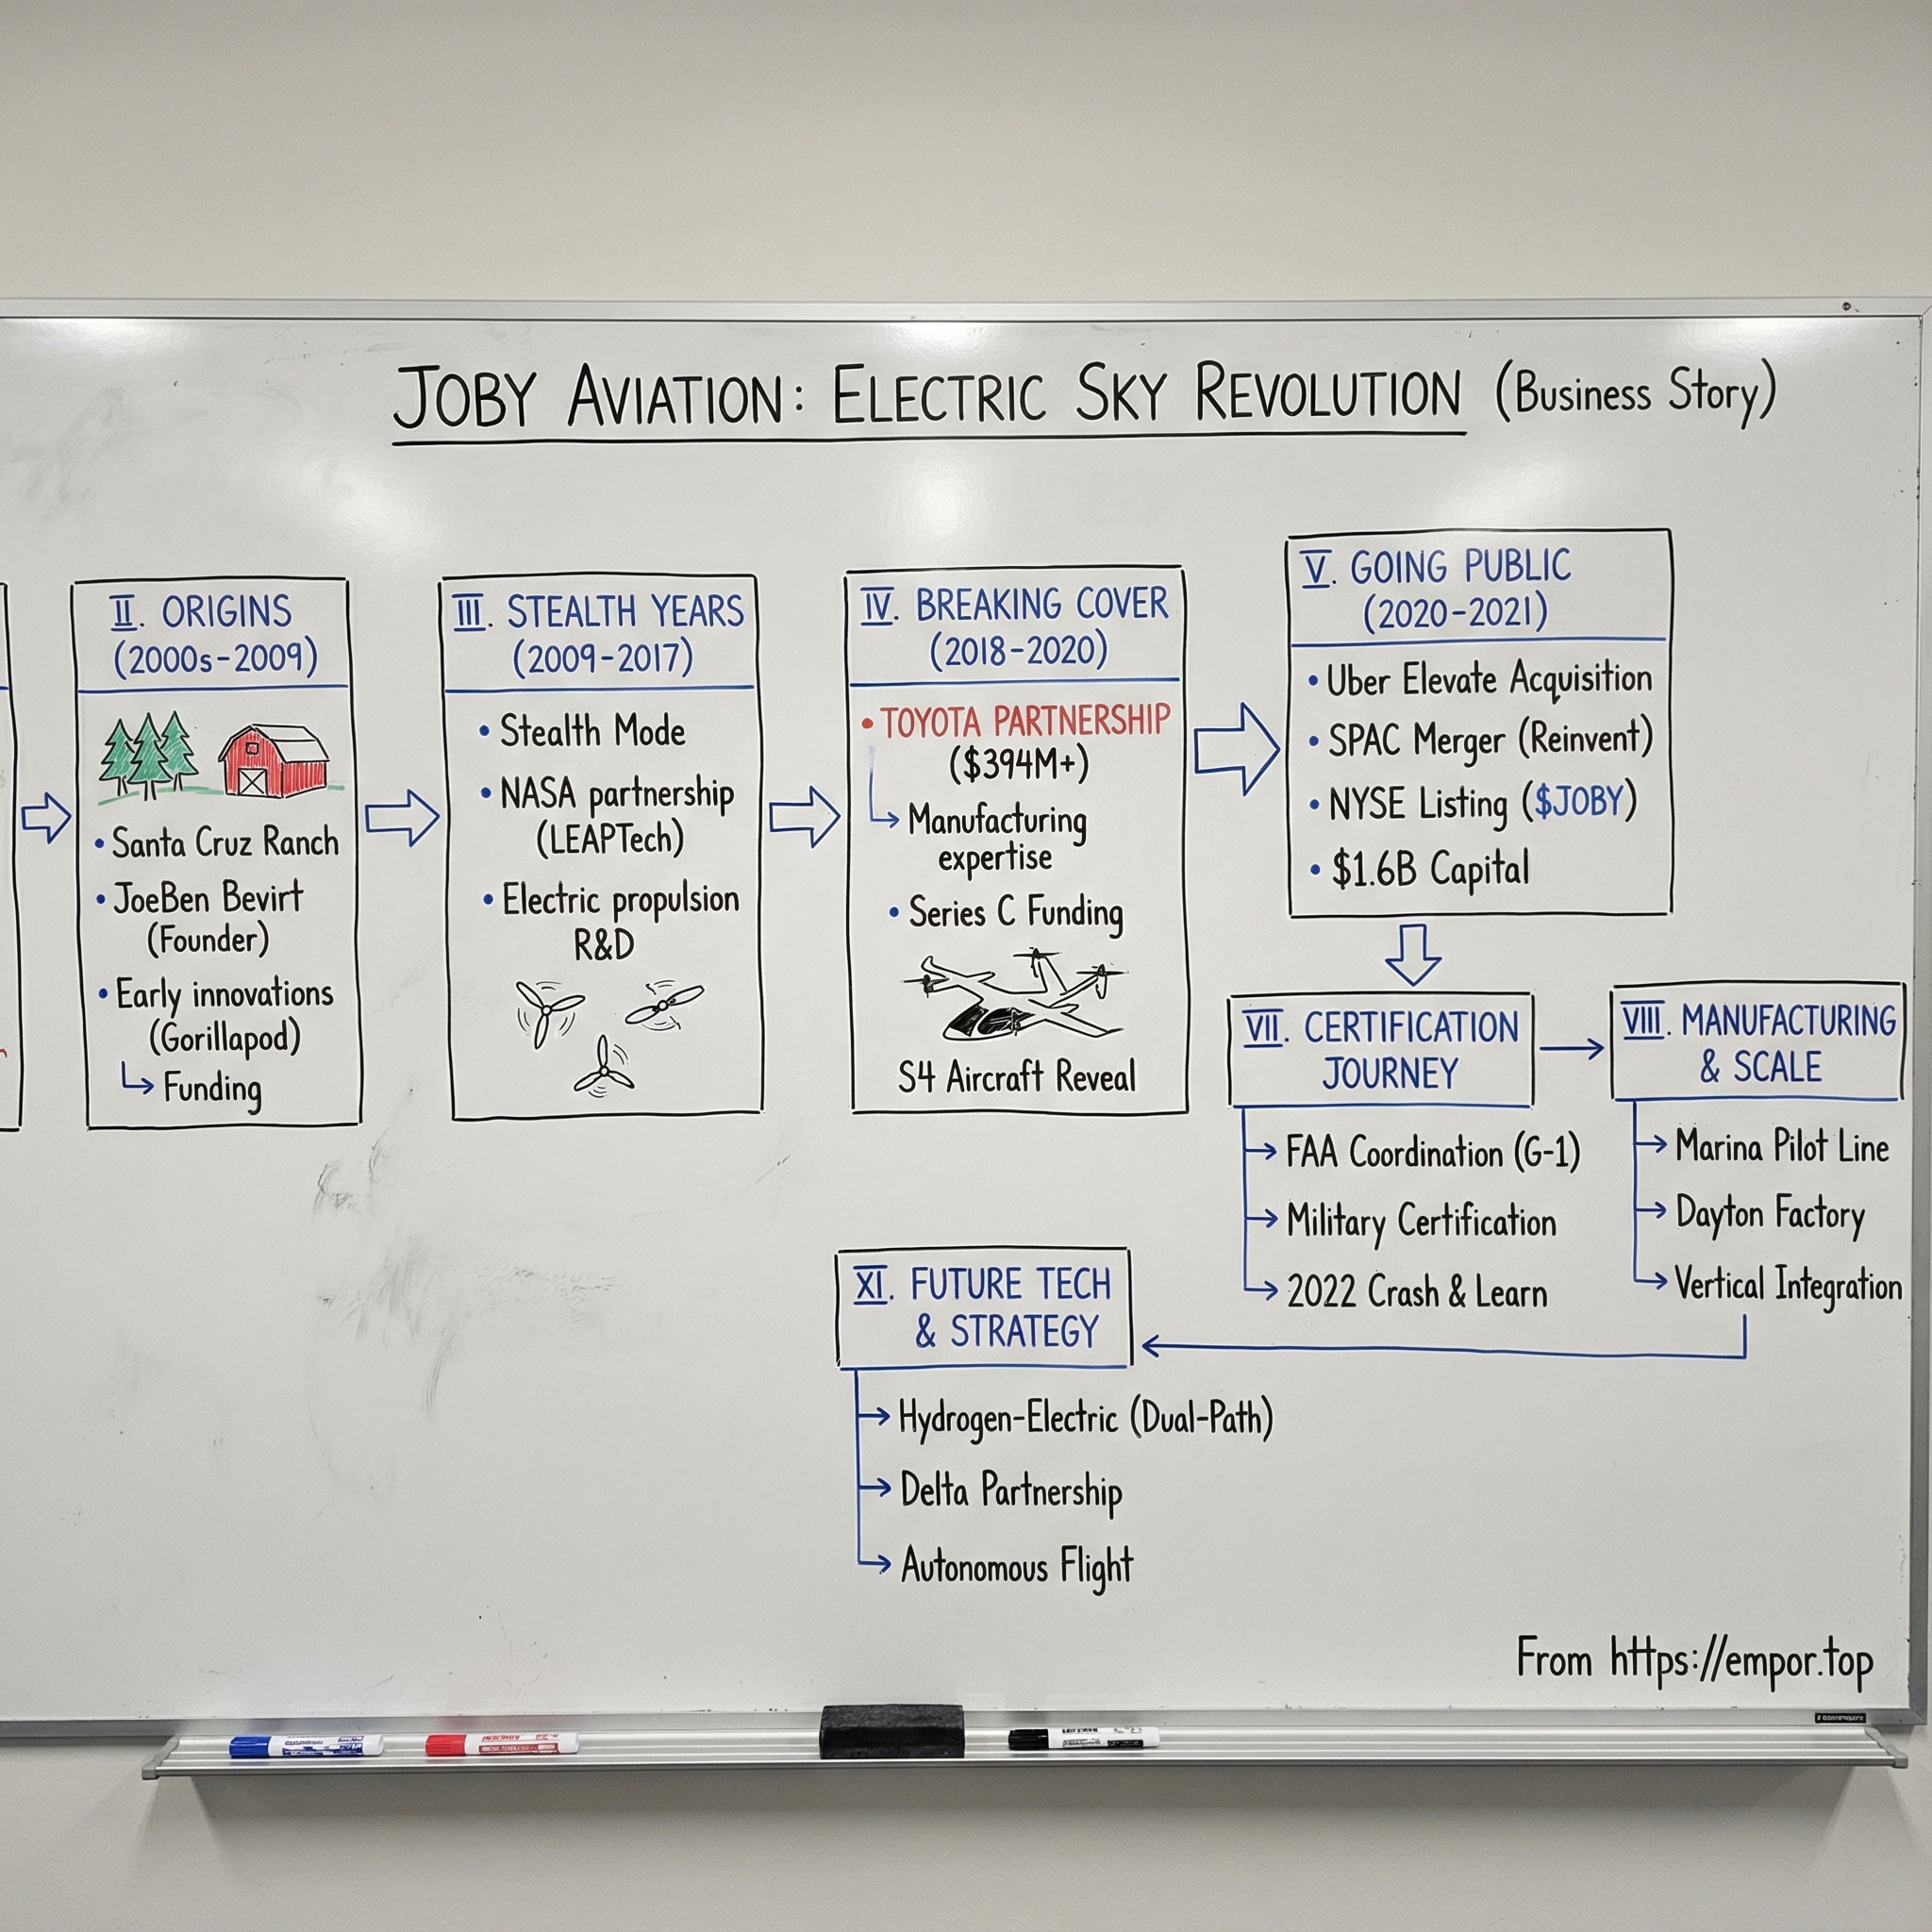 JOBY AVIATION: ELECTRIC SKY REVOLUTION (Business Story)
II. ORIGINS
(2000s-2009)
• Santa Cruz Ranch
• JoeBen Bevirt
(Founder)
• Early innovations
(Gorillapod)
↳ Funding
III. STEALTH YEARS
(2009-2017)
• Stealth Mode
• NASA partnership
(LEAPTech)
• Electric propulsion
R&D
IV. BREAKING COVER
(2018-2020)
• TOYOTA PARTNERSHIP
($394M+)
↳ Manufacturing
expertise
• Series C Funding
S4 Aircraft Reveal
V. GOING PUBLIC
(2020-2021)
• Uber Elevate Acquisition
• SPAC Merger (Reinvent)
• NYSE Listing ($JOBY)
• $1.6B Capital
VII. CERTIFICATION
JOURNEY
→ FAA Coordination (G-1)
→ Military Certification
→ 2022 Crash & Learn
VIII. MANUFACTURING
& SCALE
→ Marina Pilot Line
→ Dayton Factory
→ Vertical Integration
XI. FUTURE TECH
& STRATEGY
→ Hydrogen-Electric (Dual-Path)
→ Delta Partnership
→ Autonomous Flight
From https://empor.top